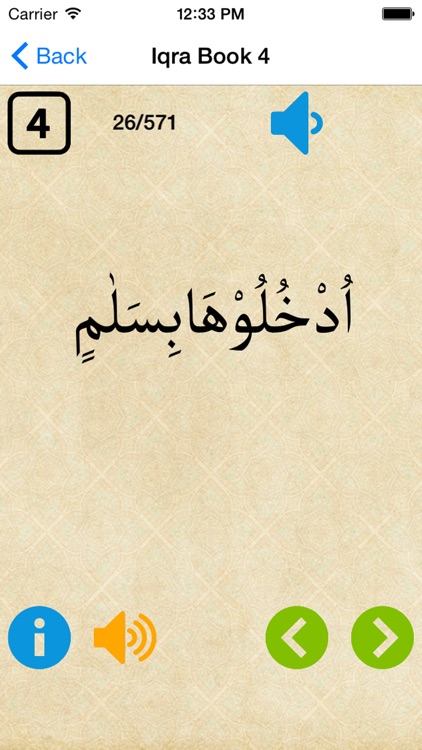 Carrier 12:33 PM
Back Iqra Book 4
4 26/571
اُدْخُلُوْهَابِسَلٰمٍ